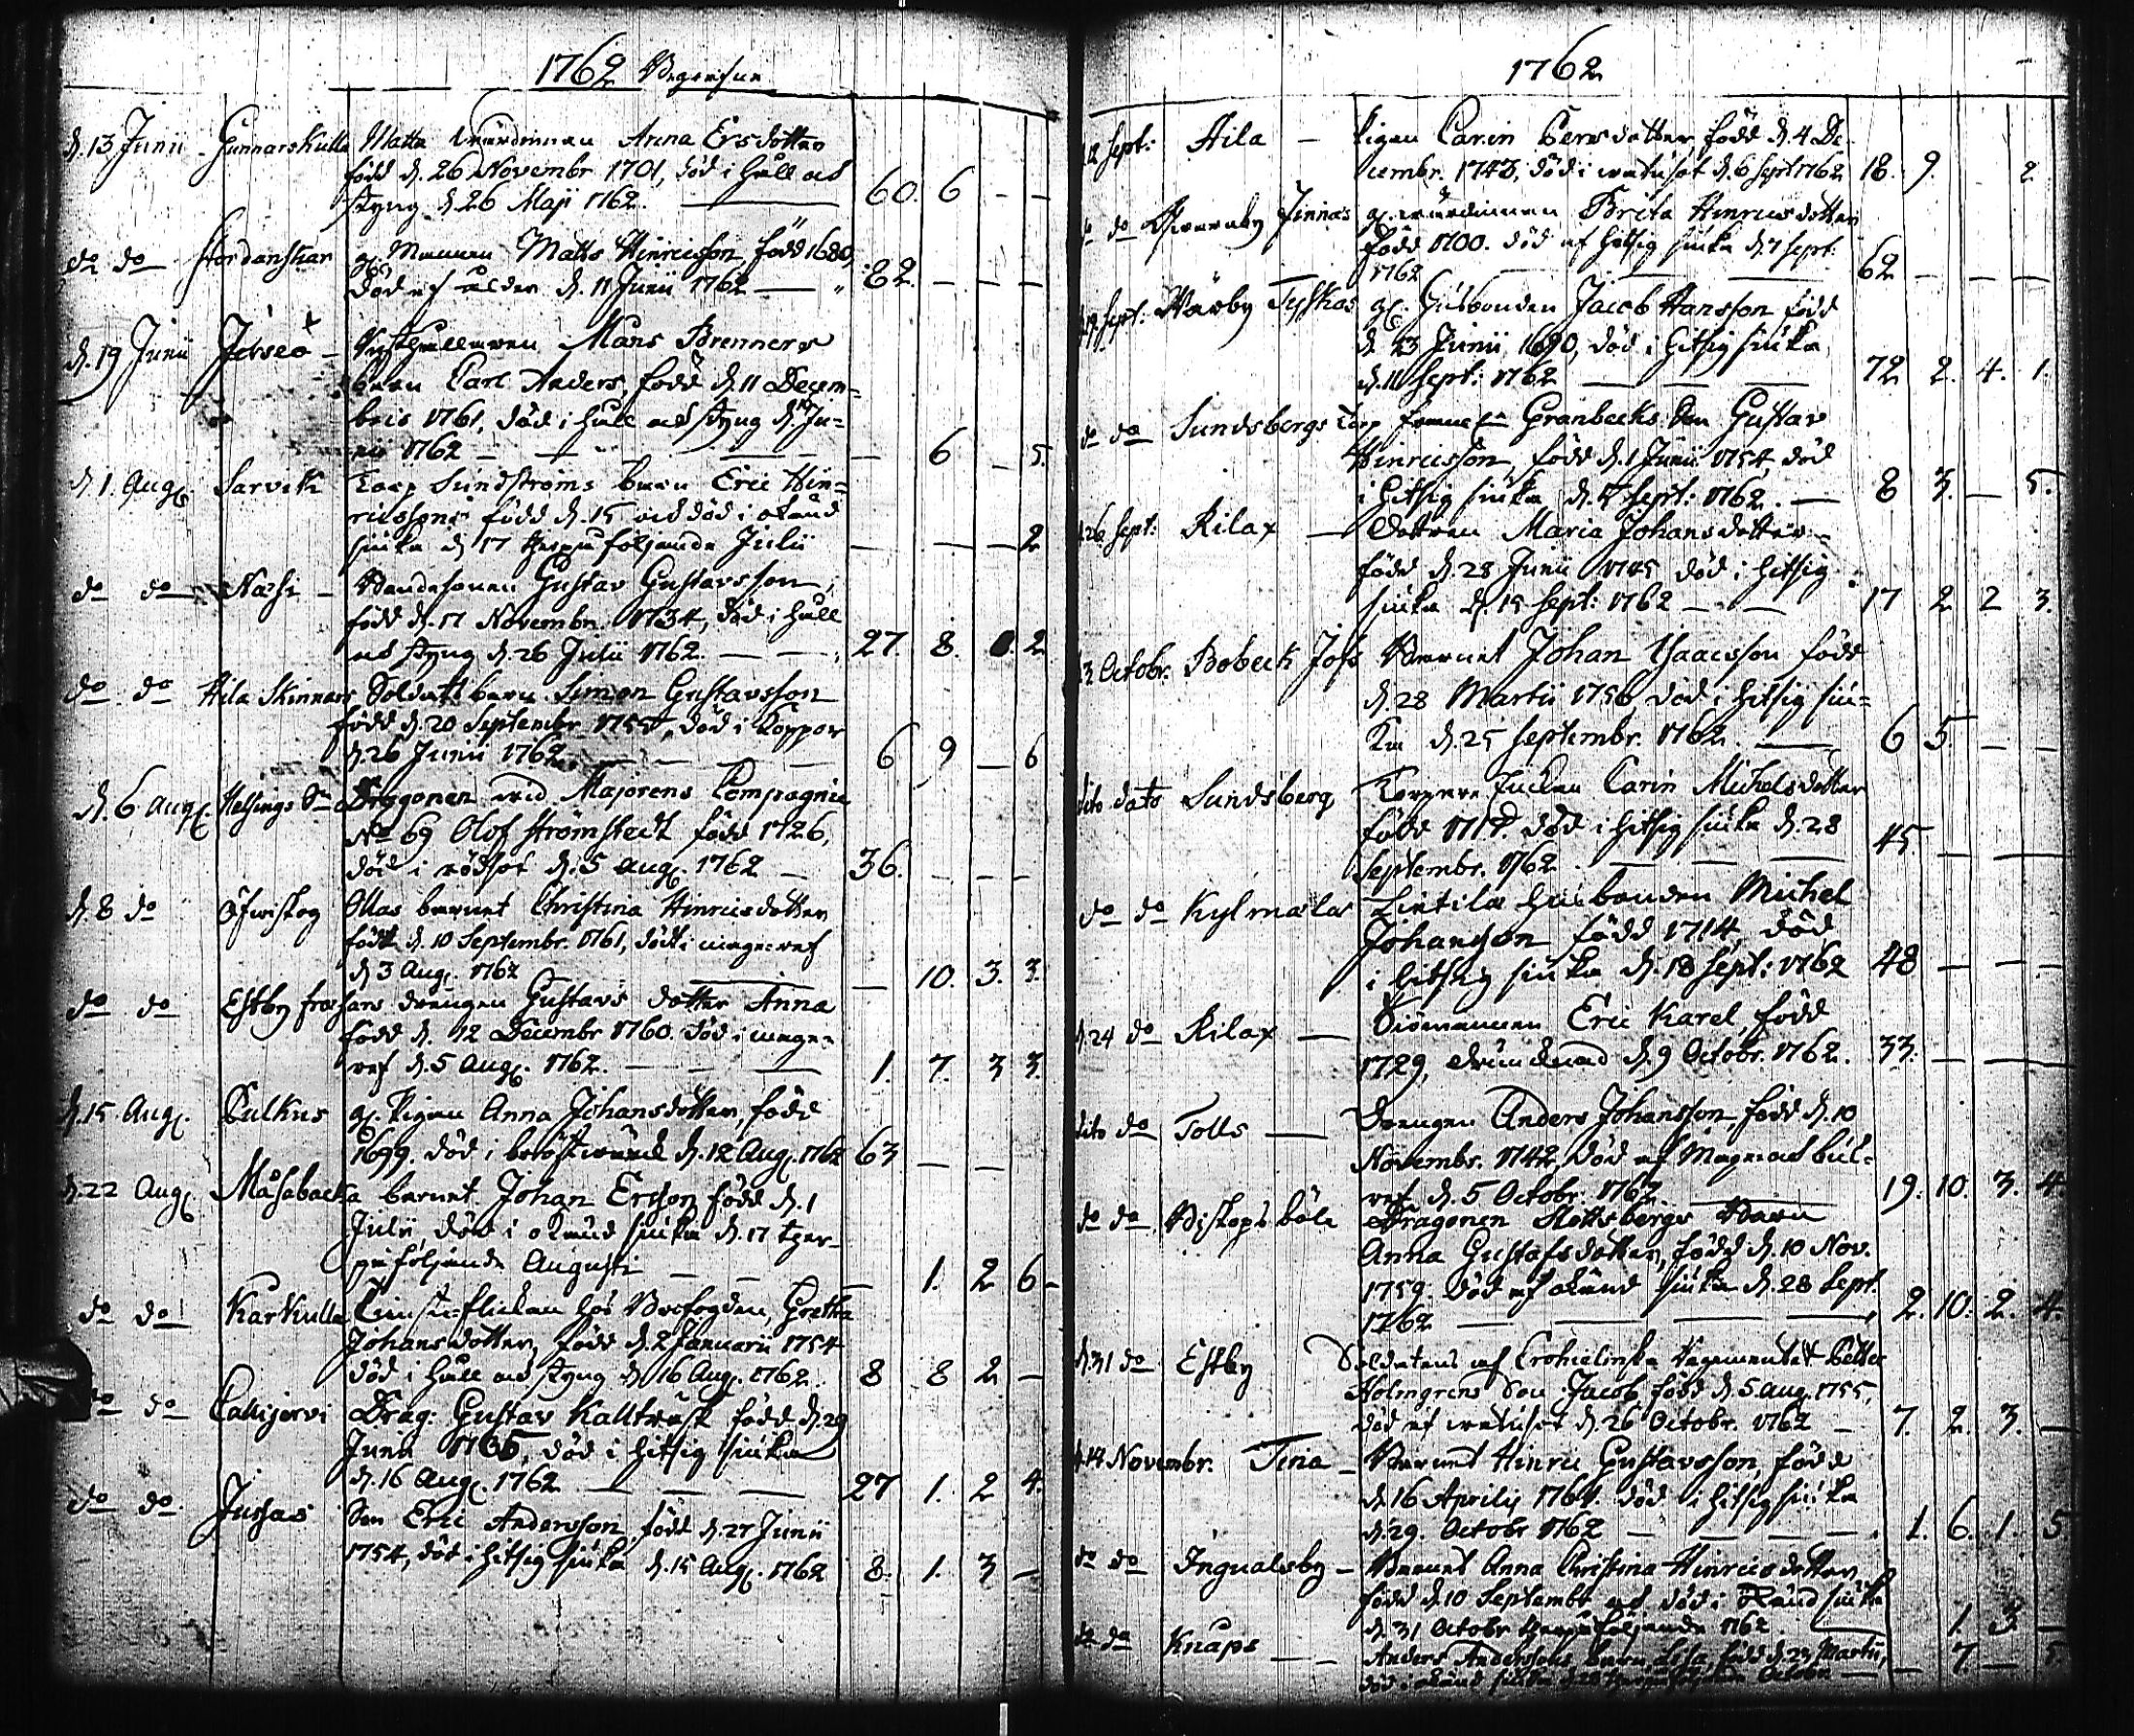 1762 Begrafne
d. 13 Junii Gunnarskulla Matts Värdinnan Anna Ersdotter
född d. 26 Novembr 1701, död i håll och
styng d. 26 Maji 1762. 60. 6 – –
do do Stordanskar gl. Mannen Matts Hinricsson född 1680,
död af ålder d. 11 Junii 1762 82. – – –
d. 19 Junii Jerseö Mans Brenners
barn Carl Anders, född d. 11 Decem-
bris 1761, död i håll och styng d. Ju-
nii 1762 – 6 – 5.
d. 1. Aug. Sarvik Torp Sundströms barn Eric Hin-
ricsson född d. 15 och död i okänd
siuka d. 17 therpåfoljande Julii – – – 2
do do Näse – Bondesonen Gustav Gustavsson,
född d. 17 Novembr. 1734, död i håll
och styng d. 26 Julii 1762. 27. 8. 2
do do Hila Skinnars Soldats barn Simon Gustavsson
född d. 20 Septembr 1755, död i Koppor
d. 26 Junii 1762 6 9 – 6
d. 6 Aug. Helsings Dragonen vid Majorens Compagnie
No 69 Olof Strömstedt född 1726,
död i rödsot d. 5 Aug. 1762 36. – – –
d. 8 do Öfwiskog Ollas barnet Christina Hinricsdotter
född d. 10 Septembr. 1761, död i
d. 3 Aug. 1762 – 10. 3. 3.
do do Estby drengen Gustavs dotter Anna
född d. 12 Decembr 1760. död i
d. 5 Aug. 1762. 1. 7. 3 3.
d. 15 Aug. Culkus gl. Pigan Anna Johansdotter, född
1699. död i bröstwärck d. 12 Aug. 1762 63 – –
d. 22 Aug Måsabacka barnet Johan Ersson född d. 1
Julii, död i okänd siuka d. 17 ther-
påfoljande Augusti – 1. 2 6
do do Karkulla flickan hos Brofogden, Gretha
Johansdotter, född d. 2 Januarii 1754
död i håll och styng d. 16 Aug. 1762. 8 8 2 –
do do Callijervi Drag: Gustav Kalltrusk född d. 29
Junii 1735, död i hitsig siuka
d. 16 Aug. 1762 27 1. 2 4.
do do Jussas Son Eric Andersson, född d. 27 Junii
1754, död i hitsig siuka d. 15 Aug. 1762 8. 1. 3 –
1762
12 Sept: Hila – Pigan Carin Persdotter född d. 4 De-
cembr. 1743, död i d. 6 Sept 1762 18. 9. 2
do do Finnäs gl. wärdinnan Brita Hinricsdotter
född 1700. död af hitsig siuka d. 7 Sept:
1762 62 – – –
19 Sept: Wärby Tyskas gl. Husbonden Jacob Hansson född
d. 23 Junii 1690, död i hitsig siuka
d. 11 Sept: 1762 72 2. 4. 1.
do do Sundsbergs Torp Granbecks Son Gustav
Hinricsson, född d. 1 Junii 1754, död
i hitsig siuka d. Sept: 1762. 8 3. – 5.
26 Sept: Rilax – Dottren Maria Johansdotter
född d. 28 Junii 1745 död i hitsig
siuka d. 15 Sept: 1762 17 2 2 3.
3. Octobr. Bobeck Jofs Barnet Johan Isaacsson född
d. 28 Martii 1756 död i hitsig siu-
ka d. 25 Septembr. 1762. 6 5. – –
dito dato Sundsberg Torpare Enckan Carin Michelsdotter
född 1717. död i hitsig siuka d. 28
Septembr. 1762. 45. – –
do do Kylmälä Lietila Husbonden Michel
Johansson född 1714, död
i hitsig siuka d. 18 Sept: 1762 48 – – –
d. 24 do Rilax – Siömannen Eric Karel, född
1729, drunknad d. 9 Octobr. 1762. 33. – – –
dito do Tolls – Drengen Anders Johansson, född d. 10
Novembr. 1742, död af
d. 5 Octobr. 1762. 19. 10. 3. 4.
do do Biskopsböle Dragonen Slottsbergs Barn
Anna Gustafsdotter, född d. 10 Nov.
1759. död af okänd siuka d. 28 Sept.
1762 2. 10. 2. 4.
d. 31 do Estby Soldatens af Regementet Petter
Holmgrens Son Jacob född d. 5. Aug. 1755,
död af d. 26 Octobr. 1762 7. 2. 3. –
d. 14 Novembr. Tina – Barnet Hinric Gustavsson, född
d. 16 Aprilis 1761. död i hitsig siuka
d. 29. Octobr 1762 1. 6. 1. 5
do do Ingvalsby – Barnet Anna Christina Hinricsdotter
född d. 10 Septembr och död i okänd siuka
d. 31 Octobr therpåföljande 1762. 1. 3. –
do do Knaps – Anders Anderssons barn Lisa född d. 23 Martii,
död i okänd siuka d. 28 Octobr – 7. – 5.